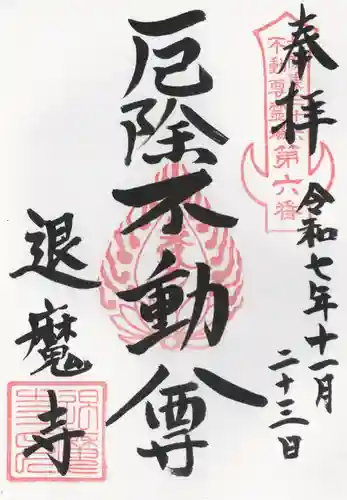 奉拝
令和七年十一月
二十三日
不動尊霊場
第六番
厄除不動尊
退魔寺